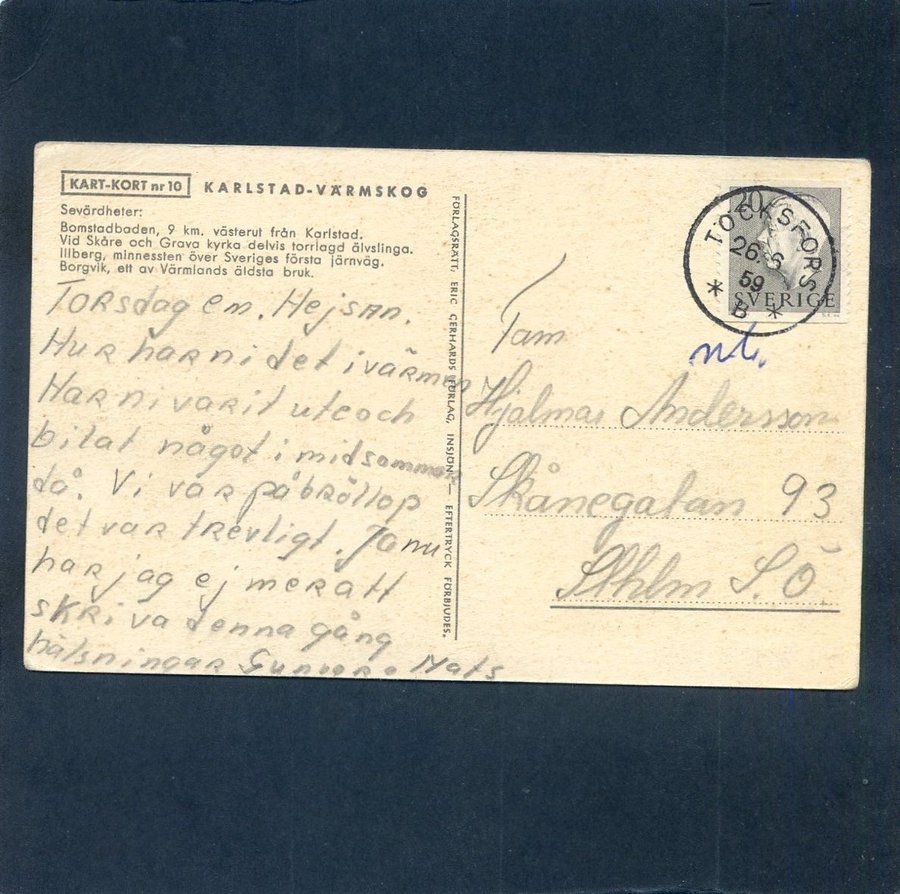 KART-KORT nr 10 KARLSTAD-VÄRMSKOG
Sevärdheter:
Bomstadbaden, 9 km. västerut från Karlstad.
Vid Skåre och Grava kyrka delvis torrlagd älvslinga.
Illberg, minnessten över Sveriges första järnväg.
Borgvik, ett av Värmlands äldsta bruk.
Torsdag em. Hejsan.
Hur har ni det i värmen
Har ni varit ute och
bilat något i midsommar
då. Vi var på bröllop
det var trevligt. Ja nu
har jag ej mer att
skriva denna gång
hälsningar Gunvor o Mats
FÖRLAGSRÄTT, ERIC GERHARDS FÖRLAG, INSJÖN — EFTERTRYCK FÖRBJUDES.
20
SVERIGE
TÖCKSFORS
26.6
59
* B *
Fam
Hjalmar Andersson
Skånegatan 93
Sthlm S.Ö.